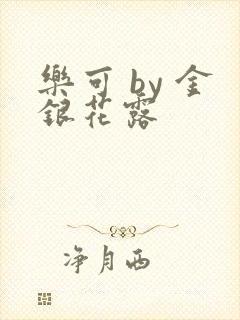 樂可 by 金
銀花露
净月西